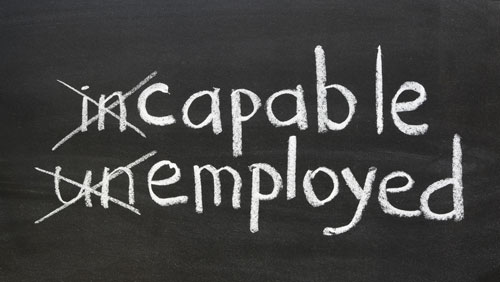 incapable
unemployed